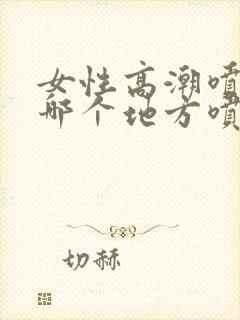 女性高潮喷
哪个地方喷
切赫